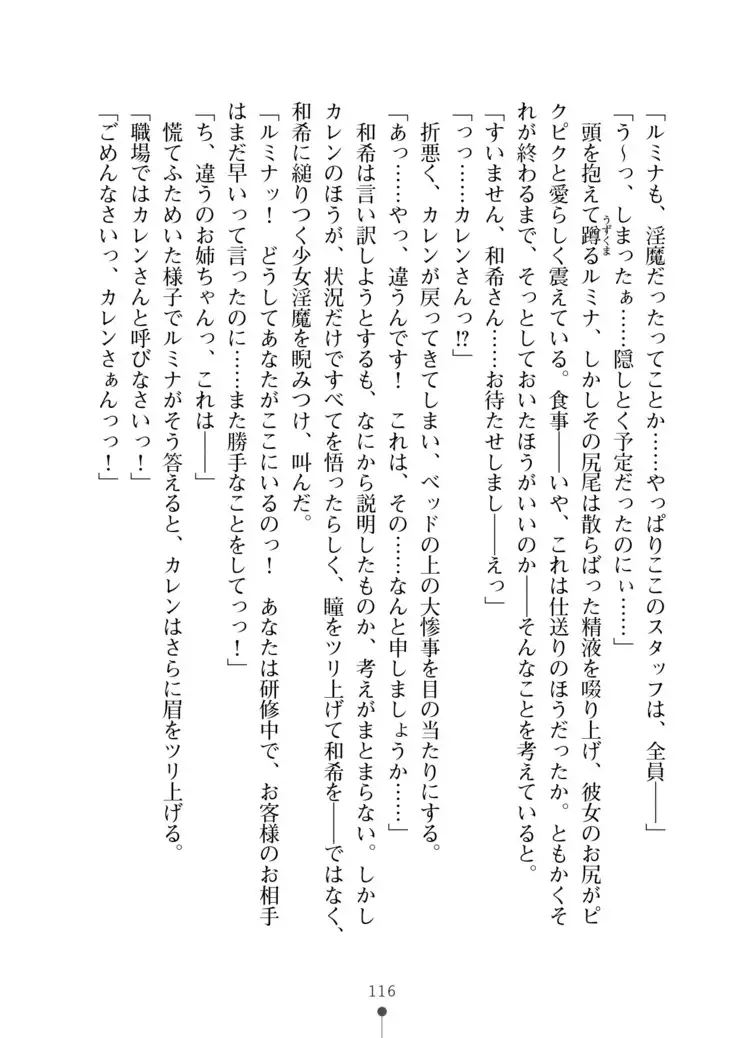 「ルミナも、淫魔だったってことか……やっぱりここのスタッフは、全員――」
「う～っ、しまったぁ……隠しとく予定だったのにぃ……」
　頭を抱えて蹲るルミナ、しかしその尻尾は散らばった精液を啜り上げ、彼女のお尻がピ
うずくま
クピクと愛らしく震えている。食事――いや、これは仕送りのほうだったか。ともかくそ
れが終わるまで、そっとしておいたほうがいいのか――そんなことを考えていると。
「すいません、和希さん……お待たせしまし――えっ」
「っっ……カレンさんっ!?」
　折悪しく、カレンが戻ってきてしまい、ベッドの上の大惨事を目の当たりにする。
「あっ……やっ、違うんです！　これは、その……なんと申しましょうか……」
　和希は言い訳しようとするも、なにから説明したものか、考えがまとまらない。しかし
カレンのほうが、状況だけですべてを悟ったらしく、瞳をツリ上げて和希を――ではなく、
和希に縋りつく少女淫魔を睨みつけ、叫んだ。
「ルミナッ！　どうしてあなたがここにいるのっ！　あなたは研修中で、お客様のお相手
はまだ早いって言ったのに……また勝手なことをしてっっ！」
「ち、違うのお姉ちゃんっ、これは――」
　慌てふためいた様子でルミナがそう答えると、カレンはさらに眉をツリ上げる。
「職場ではカレンさんと呼びなさいっ！」
「ごめんなさいっ、カレンさぁんっっ！」
116